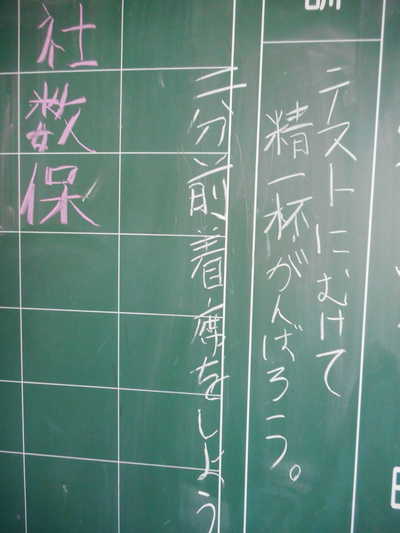 テストにむけて
精一杯がんばろう。
二分前着席をしよう
社
数
保